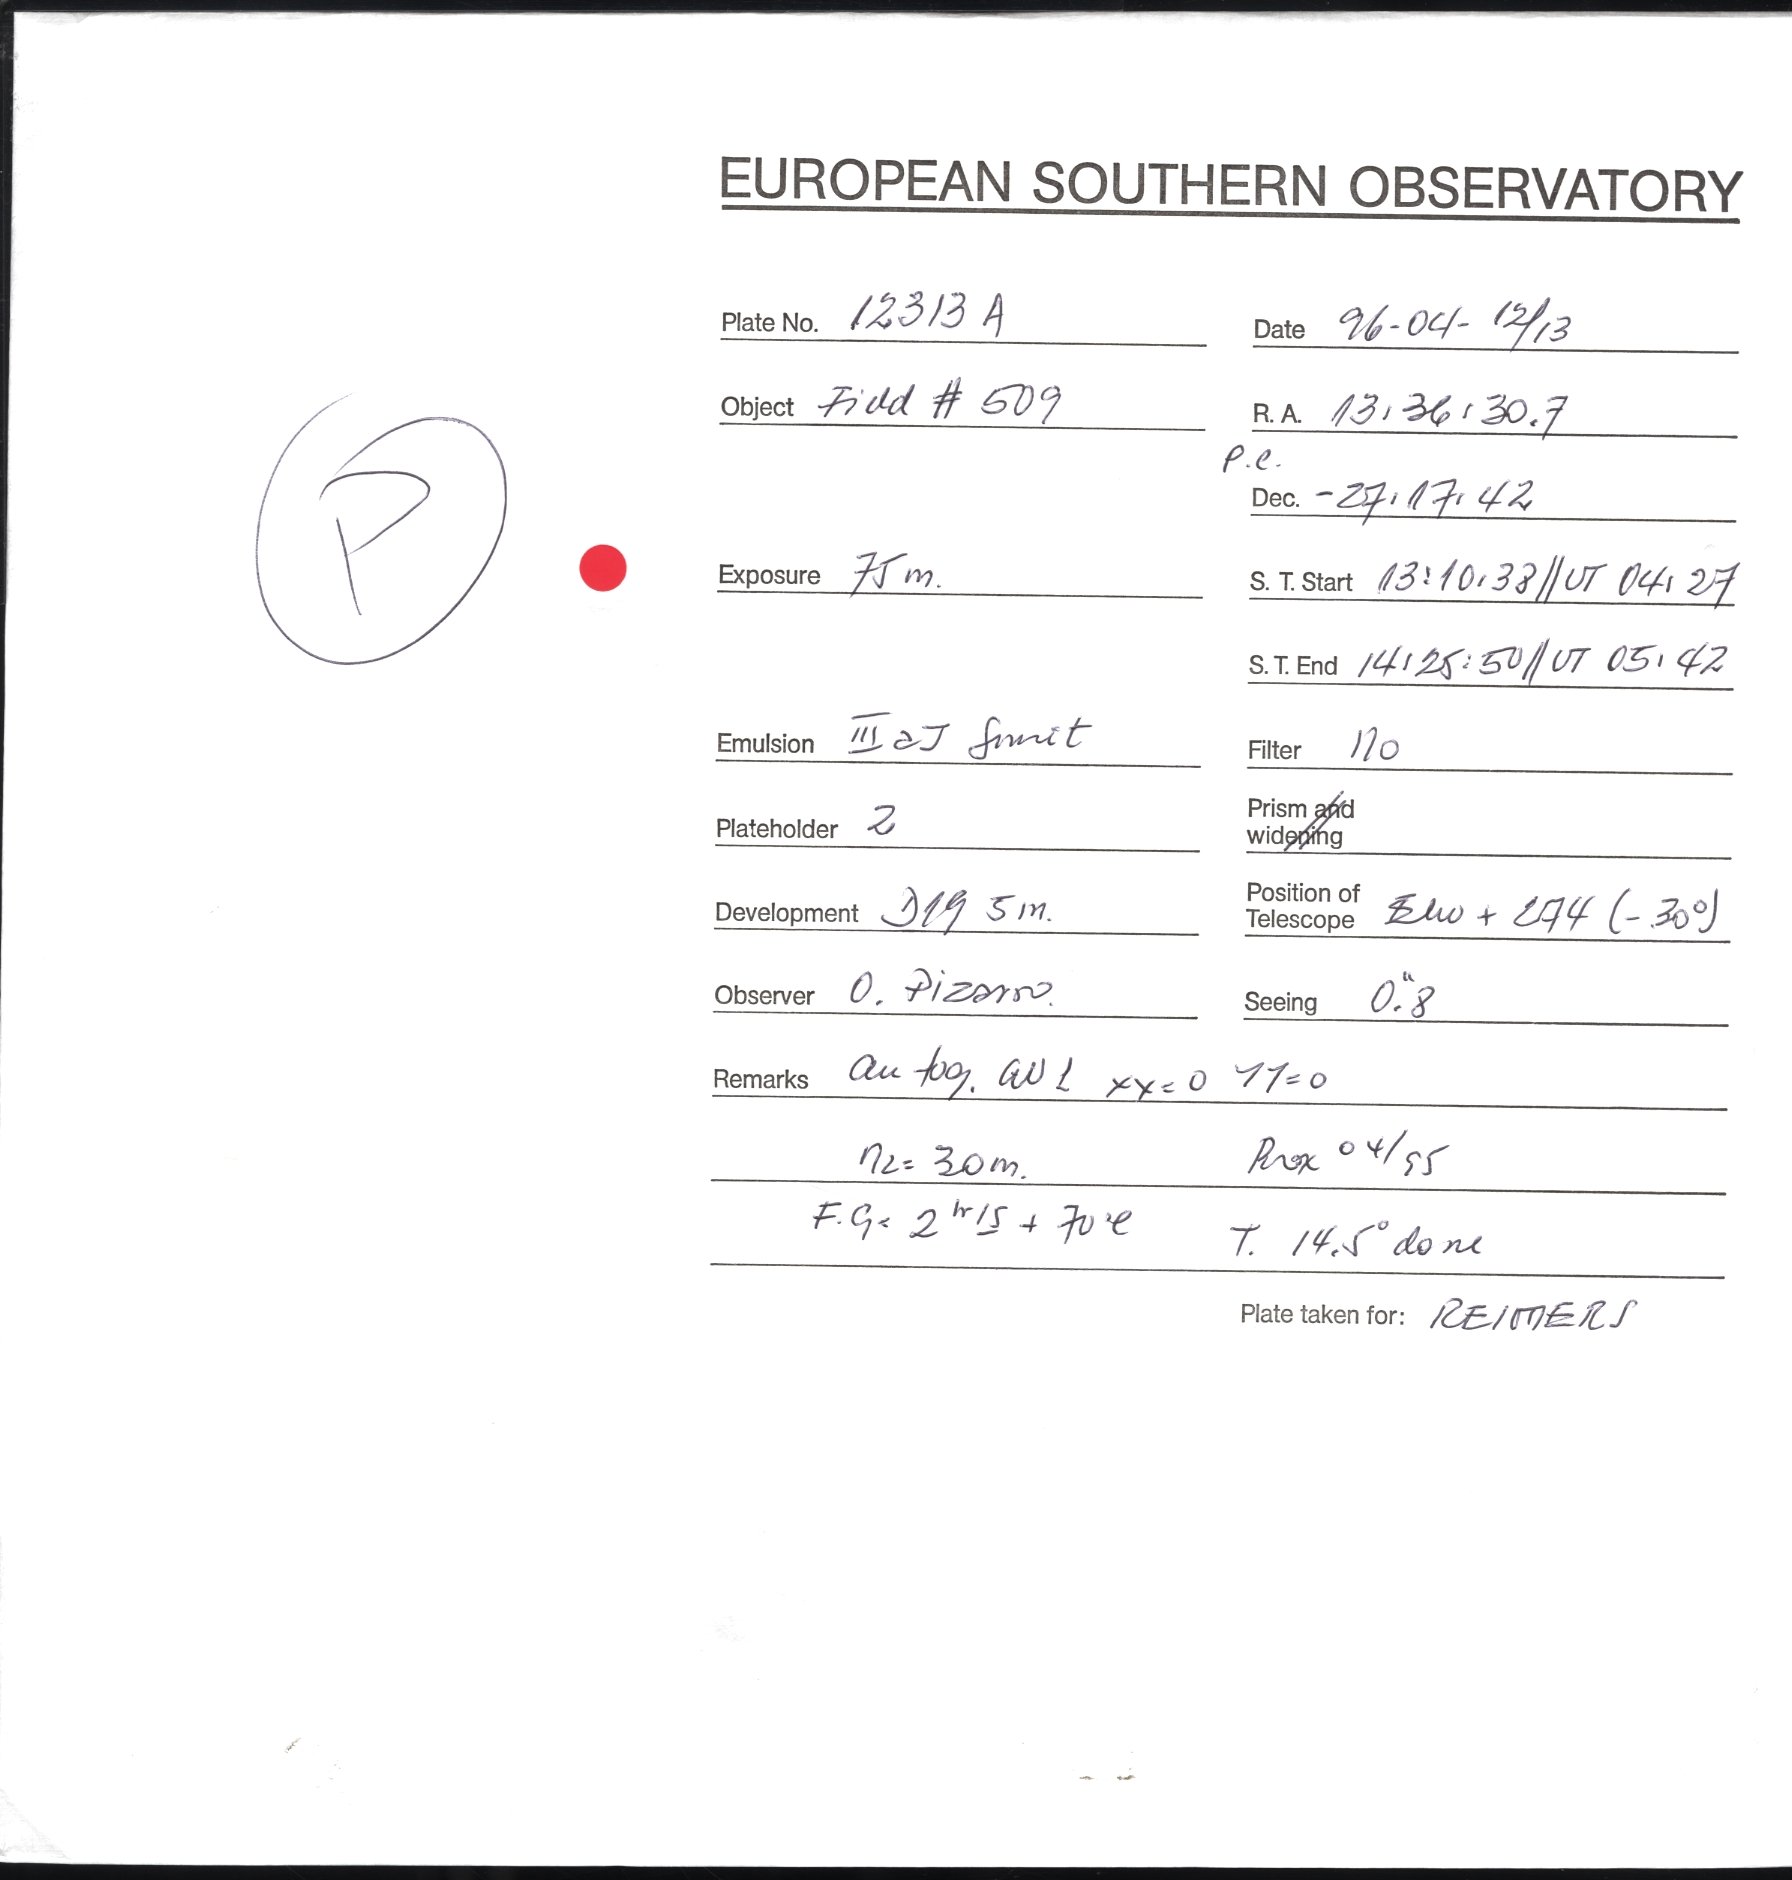 EUROPEAN SOUTHERN OBSERVATORY
Plate No. 12313 A
Date 96-04-12/13
Object Field # 509
R. A. 13:36:30.7
P.e.
Dec. -27:17:42
P
Exposure 75 m.
S. T. Start 13:10:38//UT 04:27
S. T. End 14:25:50//UT 05:42
Emulsion III aJ
Filter no
Plateholder 2
Prism and widening
Development D19 5 m.
Position of Telescope + 274 (-30°)
Observer O. Pizarro.
Seeing 0."8
Remarks xx=0 yy=0
n2= 30m. 04/95
F.G. 2 hr 15 + 70°c T. 14.5° done
Plate taken for: REIMERS